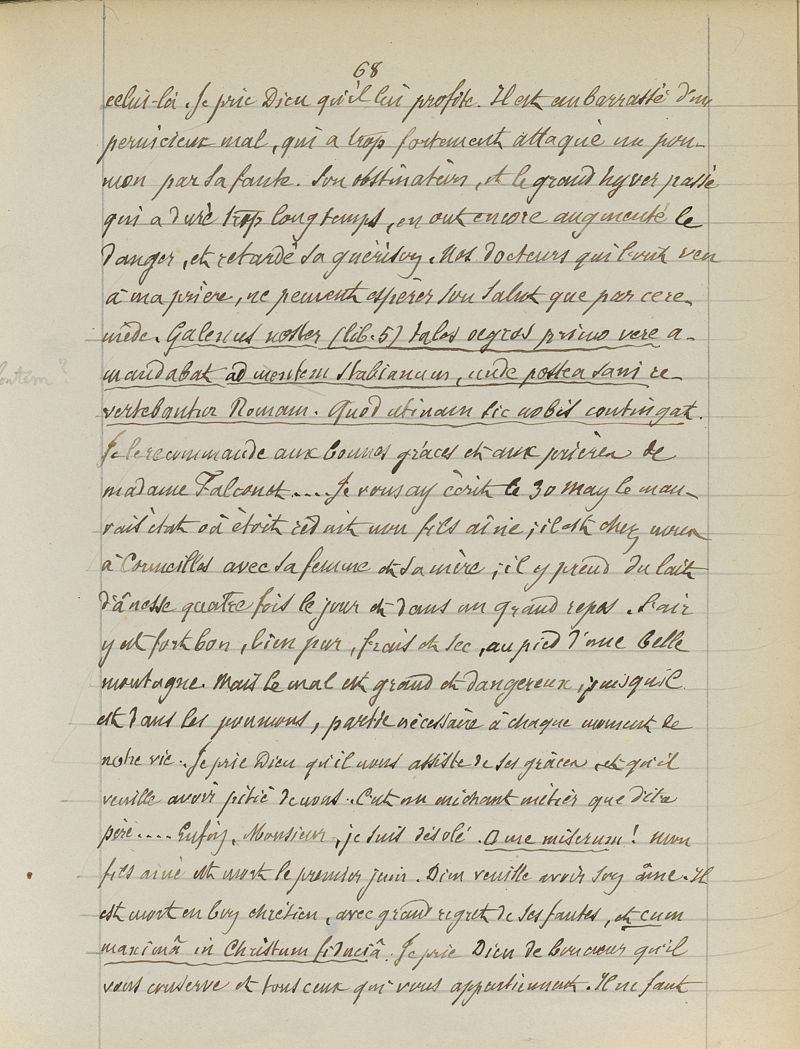 68
celui-là. Je prie Dieu qu'il lui profite. Il est embarrassé d'un
pernicieux mal, qui a trop fortement attaqué un pou-
mon par sa faute. Son obstination, et le grand hyver passé
qui a duré trop longtemps, en ont encore augmenté le
danger, et retardé sa guérison. Nos docteurs qui l'ont veu
à ma prière, ne peuvent espérer son salut que par ce re-
mède. Galenus noster (lib. 5) tales oegros primo vere a-
mandabat ad mentem Stabianum, unde postea sani re-
vertebantur Romam. Quod utinam sic nobis contingat.
montem?
Je le recommande aux bonnes grâces et aux prières de
madame Falconet.... Je vous ay écrit le 30 May le mau-
vais état où étoit réduit mon fils aîné; il est chez nous
à Cormeilles avec sa femme et sa mère; il y prend du lait
d'ânesse quatre fois le jour et dans un grand repos. L'air
y est fort bon, bien pur, frais et sec, au pied d'une belle
montagne. Mais le mal est grand et dangereux, puisqu'il
est dans les poumons, partie nécessaire à chaque moment de
notre vie. Je prie Dieu qu'il nous assiste de ses grâces, et qu'il
veuille avoir pitié de nous. C'est un méchant métier que d'être
père.... Enfin, Monsieur, je suis désolé. O me miserum! mon
fils aîné est mort le premier juin. Dieu veuille avoir son âme. Il
est mort en bon chrétien, avec grand regret de ses fautes, et cum
maximâ in Christum fiduciâ. Je prie Dieu de bon coeur qu'il
vous conserve et tous ceux qui vous appartiennent. Il ne faut